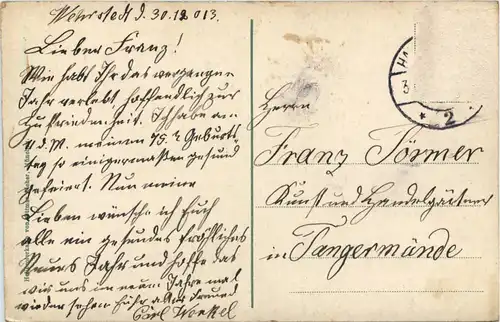 Wehrstedt d. 30.12.013.
Lieber Franz!
Wie habt Ihr das vergangene
Jahr verlebt hoffendlich zur
Zufriedenheit. Ich habe am
d. M. meinen 75. Geburts
tag so einigermaßen gesund
gefeiert. Nun meine
Lieben wünsche ich Euch
alle ein gesundes fröhliches
Neues Jahr und hoffe das
wir uns im neuen Jahre mal
wieder sehen Euer alter Freund
Carl Wenkel
Herrn
Franz Törmer
Kunst und Handelgärtner
in Tangermünde
* 2